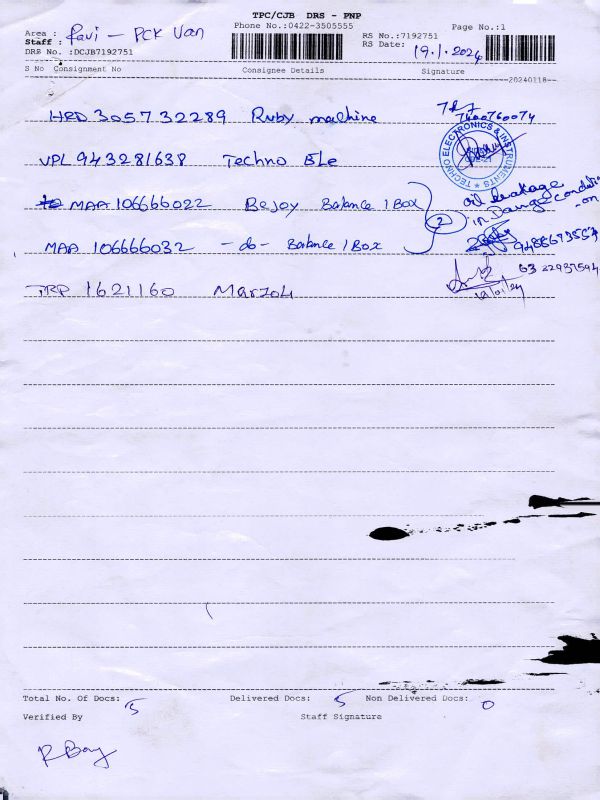 TPC/CJB DRS - PNP
Phone No.:0422-3505555 Page No.:1
Area : Ravi - PCK Van
Staff :
RS No.:7192751
RS Date: 19.1.2024
DR# No. :DCJB7192751
S No Consignment No Consignee Details Signature
20240118
HRD 305732289 Ruby machine
7400760074
TECHNO ELECTRONICS & INSTRUMENTS
VPL 943281638 Techno Ele
MAA 106666022 Bejoy Balance 1 Box
2
oil leakage
in Dange condition
MAA 106666032 - do - Balance 1 Box
TRP 1621160 Marzoli
63 22937594
19/01/24
Total No. Of Docs: 5 Delivered Docs: 5 Non Delivered Docs: 0
Verified By Staff Signature